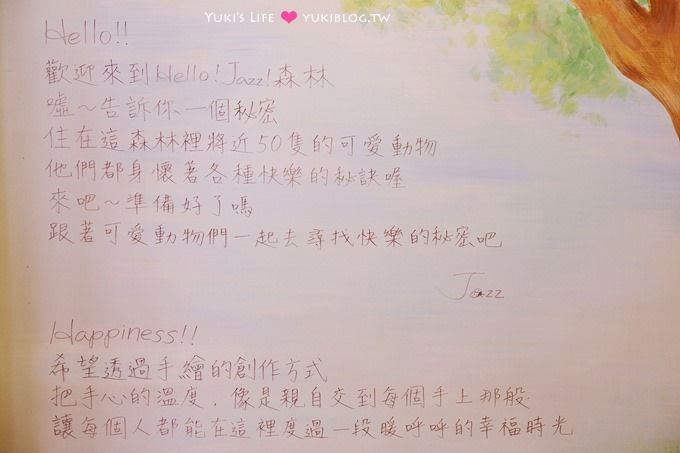 Yuki's Life ❤ yukiblog.tw
Hello!!
歡迎來到Hello! Jazz!森林
噓~告訴你一個秘密
住在這森林裡將近50隻的可愛動物
他們都身懷著各種快樂的秘訣喔
來吧~準備好了嗎
跟著可愛動物們一起去尋找快樂的秘密吧
Jazz
Happiness!!
希望透過手繪的創作方式
把手心的溫度，像是親自交到每個手上那般
讓每個人都能在這裡度過一段暖呼呼的幸福時光